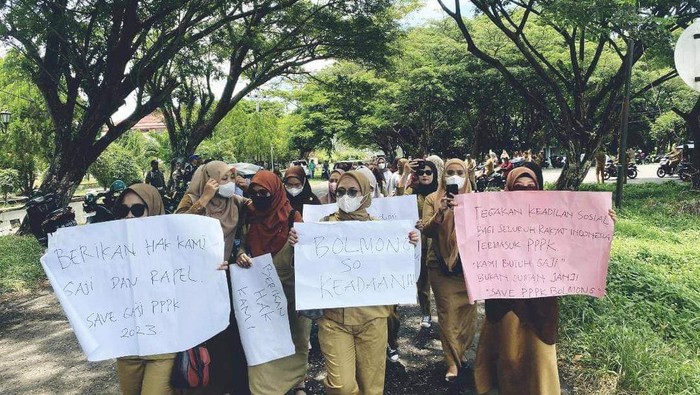 BERIKAN HAK KAMI
GAJI DAN RAPEL
SAVE GAJI PPPK
2023
BERIKAN
HAK
KAMI
BOLMONG
SO
KEADAAN!!!
TEGAKAN KEADILAN SOSIAL
BAGI SELURUH RAKYAT INDONESIA
TERMASUK PPPK
"KAMI BUTUH GAJI"
BUKAN CUMAN JANJI
"SAVE PPPK BOLMONG"